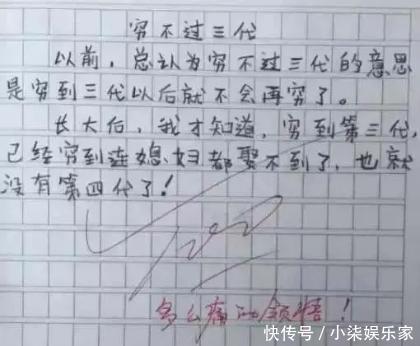 穷不过三代
以前，总认为穷不过三代的意思
是穷到三代以后就不会再穷了。
长大后，我才知道，穷到第三代，
已经穷到连媳妇都娶不到了，也就
没有第四代了！
100
多么痛的领悟！
快传号／小柒娱乐家